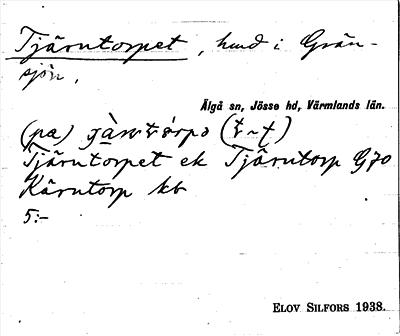 Tjärutorpet, hmd i Grän-
sjön.
Älgå sn, Jösse hd, Värmlands län.
(pa)
Tjärutorpet ek Tjärutorp G70
Kärutorp kb
5:-
ELOV SILFORS 1938.